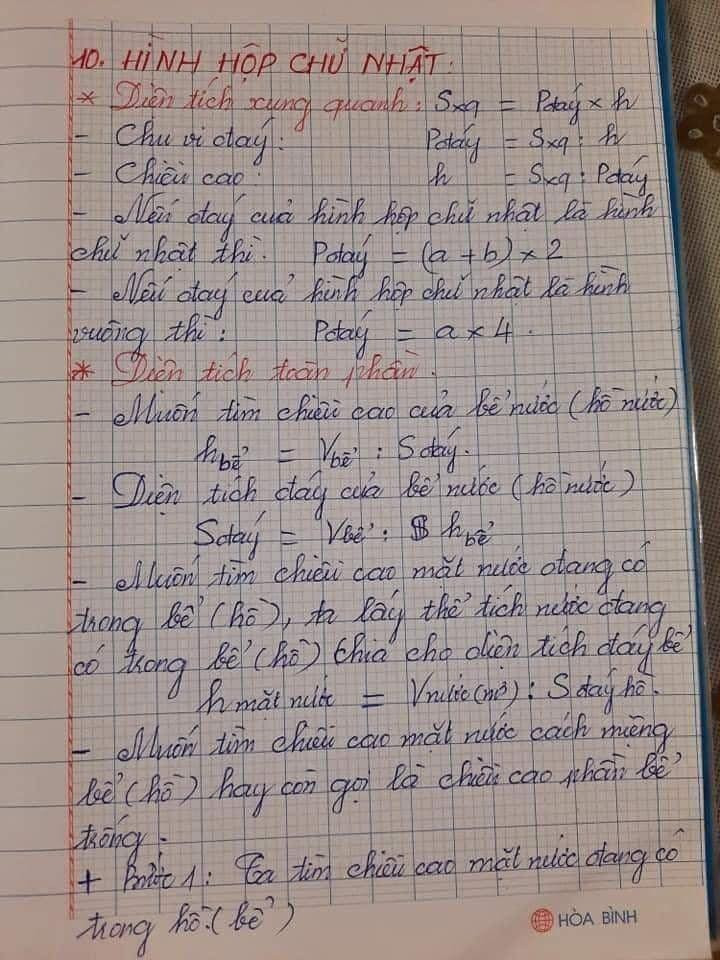 10. HÌNH HỘP CHỮ NHẬT:
* Diện tích xung quanh: Sxq = Pđáy x h
- Chu vi đáy: Pđáy = Sxq : h
- Chiều cao: h = Sxq : Pđáy
- Nếu đáy của hình hộp chữ nhật là hình
chữ nhật thì. Pđáy = (a + b) x 2
- Nếu đáy của hình hộp chữ nhật là hình
vuông thì: Pđáy = a x 4.
* Diện tích toàn phần.
- Muốn tìm chiều cao của bể nước (hồ nước)
h bể = V bể : S đáy.
- Diện tích đáy của bể nước (hồ nước)
S đáy = V bể : h bể
- Muốn tìm chiều cao mặt nước đang có
trong bể (hồ), ta lấy thể tích nước đang
có trong bể (hồ) chia cho diện tích đáy bể
h mặt nước = V nước (m3) : S đáy hồ.
- Muốn tìm chiều cao mặt nước cách miệng
bể (hồ) hay còn gọi là chiều cao phần bể
trống.
+ Bước 1: Ta tìm chiều cao mặt nước đang có
trong hồ. (bể)
HÒA BÌNH